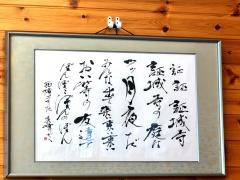 証証証城寺
証城寺の庭は
つ月夜だ
みんな出て来い来い来い
おい等の友達ァ
ぽんぽこぽんのぽん